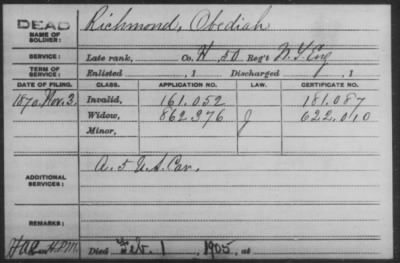 DEAD Richmond, Obediah
NAME OF SOLDIER:
SERVICE: Late rank, Co. H 50 Reg't N.Y. Eng
TERM OF SERVICE: Enlisted , 1 Discharged , 1
DATE OF FILING. CLASS. APPLICATION NO. LAW. CERTIFICATE NO.
1870. Nov. 2. Invalid, 161.052 181.087
Widow, 862376 J 622.010
Minor,
ADDITIONAL SERVICES: A. 5 U.S. Cav.
REMARKS:
Died Feb. 1, 1905, at